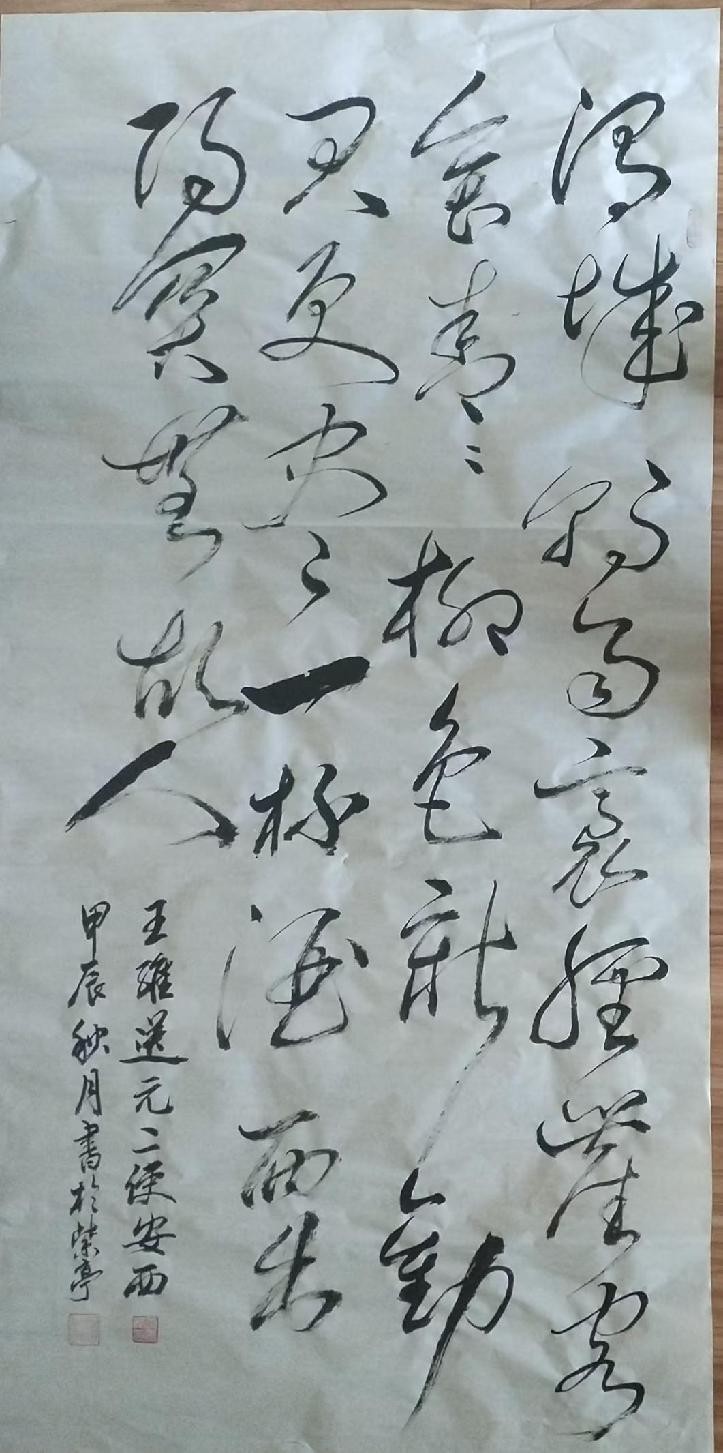 渭城朝雨裛輕塵客
舍青青柳色新勸
君更尽一杯酒西出
陽關無故人
王維送元二使安西
甲辰秋月書於亭